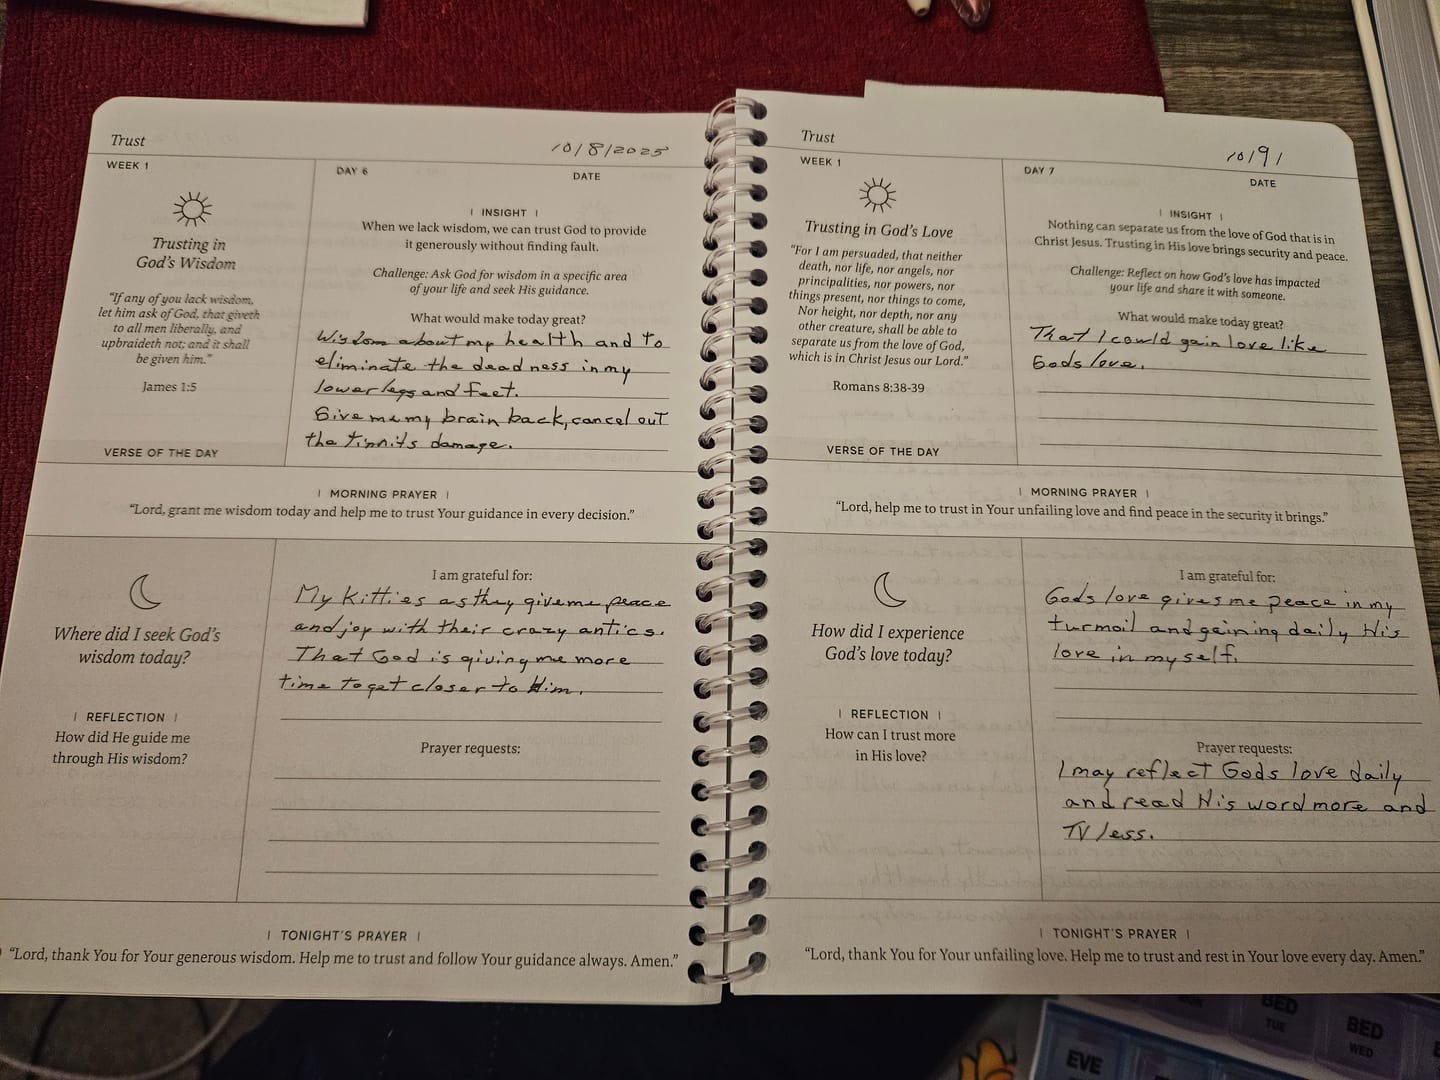 Trust
10/8/2025
WEEK 1
DAY 6
DATE
Trusting in
God's Wisdom
"If any of you lack wisdom,
let him ask of God, that giveth
to all men liberally, and
upbraideth not; and it shall
be given him."
James 1:5
VERSE OF THE DAY
| INSIGHT |
When we lack wisdom, we can trust God to provide
it generously without finding fault.
Challenge: Ask God for wisdom in a specific area
of your life and seek His guidance.
What would make today great?
Wisdom about my health and to
eliminate the deadness in my
lower legs and feet.
Give me my brain back, cancel out
the tinnits damage.
| MORNING PRAYER |
"Lord, grant me wisdom today and help me to trust Your guidance in every decision."
Where did I seek God's
wisdom today?
| REFLECTION |
How did He guide me
through His wisdom?
I am grateful for:
My kitties as they give me peace
and joy with their crazy antics.
That God is giving me more
time to get closer to Him.
Prayer requests:
| TONIGHT'S PRAYER |
"Lord, thank You for Your generous wisdom. Help me to trust and follow Your guidance always. Amen."
Trust
10/9/
WEEK 1
DAY 7
DATE
Trusting in God's Love
"For I am persuaded, that neither
death, nor life, nor angels, nor
principalities, nor powers, nor
things present, nor things to come,
Nor height, nor depth, nor any
other creature, shall be able to
separate us from the love of God,
which is in Christ Jesus our Lord."
Romans 8:38-39
VERSE OF THE DAY
| INSIGHT |
Nothing can separate us from the love of God that is in
Christ Jesus. Trusting in His love brings security and peace.
Challenge: Reflect on how God's love has impacted
your life and share it with someone.
What would make today great?
That I could gain love like
Gods love.
| MORNING PRAYER |
"Lord, help me to trust in Your unfailing love and find peace in the security it brings."
How did I experience
God's love today?
| REFLECTION |
How can I trust more
in His love?
I am grateful for:
Gods love gives me peace in my
turmoil and gaining daily His
love in myself.
Prayer requests:
I may reflect Gods love daily
and read His word more and
TV less.
| TONIGHT'S PRAYER |
"Lord, thank You for Your unfailing love. Help me to trust and rest in Your love every day. Amen."
BED
TUE
BED
WED
EVE